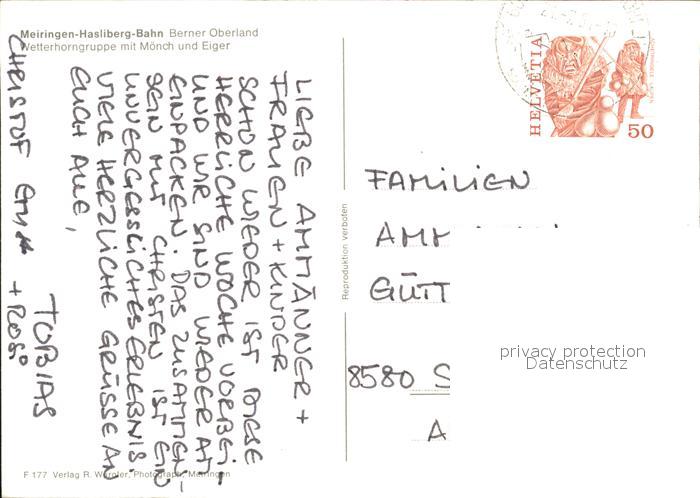 Meiringen-Hasliberg-Bahn Berner Oberland
Wetterhorngruppe mit Mönch und Eiger
LIEBE AMMÄNNER +
FRAUEN + KINDER
SCHON WIEDER IST DIESE
HERRLICHE WOCHE VORBEI –
UND WIR SIND WIEDER AM
EINPACKEN. DAS ZUSAMMEN-
SEIN MIT CHRISTEN IST EIN
UNVERGESSLICHES ERLEBNIS.
VIELE HERZLICHE GRÜSSE AN
EUCH ALLE,
TOBIAS
CHRISTOF + ROSO
F 177 Verlag R. Würgler, Photograph, Meiringen
Reproduktion verboten
HELVETIA
50
FAMILIEN
AMM
GÜTT
8580 S
A
privacy protection
Datenschutz